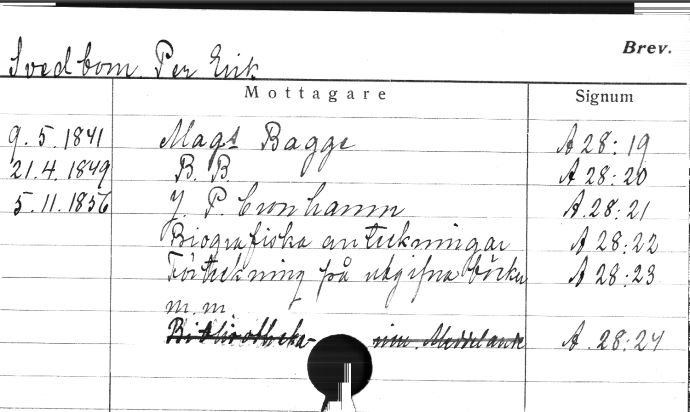 Brev.
Svedbom Per Erik
Mottagare Signum
9.5.1841 Magst Bagge A 28:19
21.4.1849 B. B. A 28:20
5.11.1856 J. P. Cronhamn A.28:21
Biografiska anteckningar A 28:22
Förteckning på utgifna böcker A 28:23
m.m.
Bibliotheka- Meddelande A.28:24